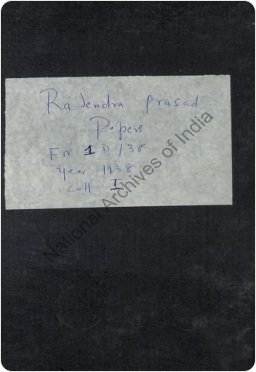 Rajendra Prasad
Papers
1 D/38
Year 1938
Coll I
National Archives of India